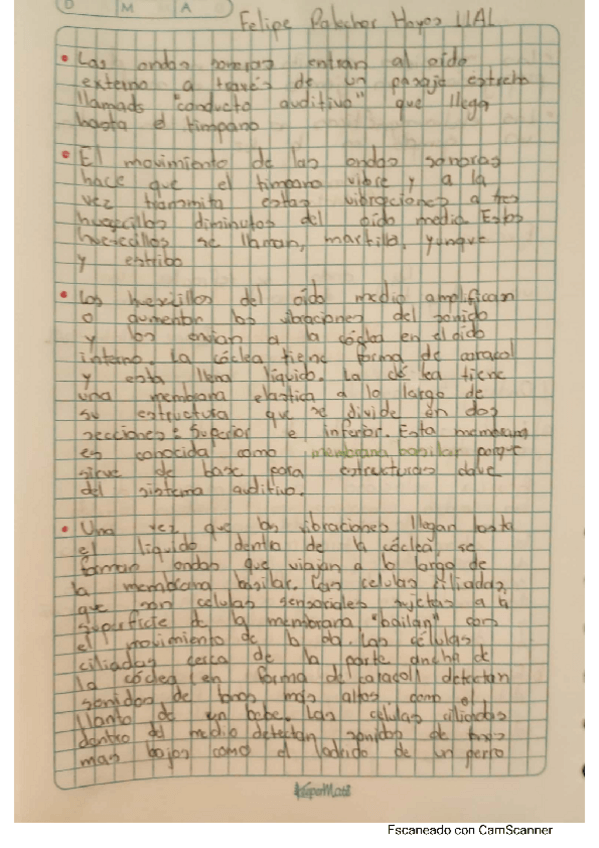 D M A
Felipe Palechor Hoyos 11A1
• Las ondas sonoras entran al oído
externo a través de un pasaje estrecho
llamado "conducto auditivo" que llega
hasta el tímpano
• El movimiento de las ondas sonoras
hace que el tímpano vibre y a la
vez transmita estas vibraciones a tres
huesecillos diminutos del oído medio. Estos
huesecillos se llaman, martillo, yunque
y estribo
• Los huesillos del oído medio amplifican
o aumentan las vibraciones del sonido
y los envian a la cóclea en el oído
interno. La cóclea tiene forma de caracol
y esta llena líquido. La cóclea tiene
una membrana elastica a lo largo de
su estructura que se divide en dos
secciones: Superior e inferior. Esta membrana
es conocida como membrana basilar porque
sirve de base para estructuras clave
del sistema auditivo.
• Una vez que las vibraciones llegan hasta
el líquido dentro de la cóclea, se
forman ondas que viajan a lo largo de
la membrana basilar. Las celulas ciliadas,
que son celulas sensoriales sujetas a la
superficie de la membrana, "bailan" con
el movimiento de la ola. Las células
ciliadas cerca de la parte ancha de
la cóclea (en forma de caracol) detectan
sonidos de tonos más altos como el
llanto de un bebe. Las células ciliadas
dentro del medio detectan sonidos de tonos
mas bajos como el ladrido de un perro
SuperMass
Escaneado con CamScanner